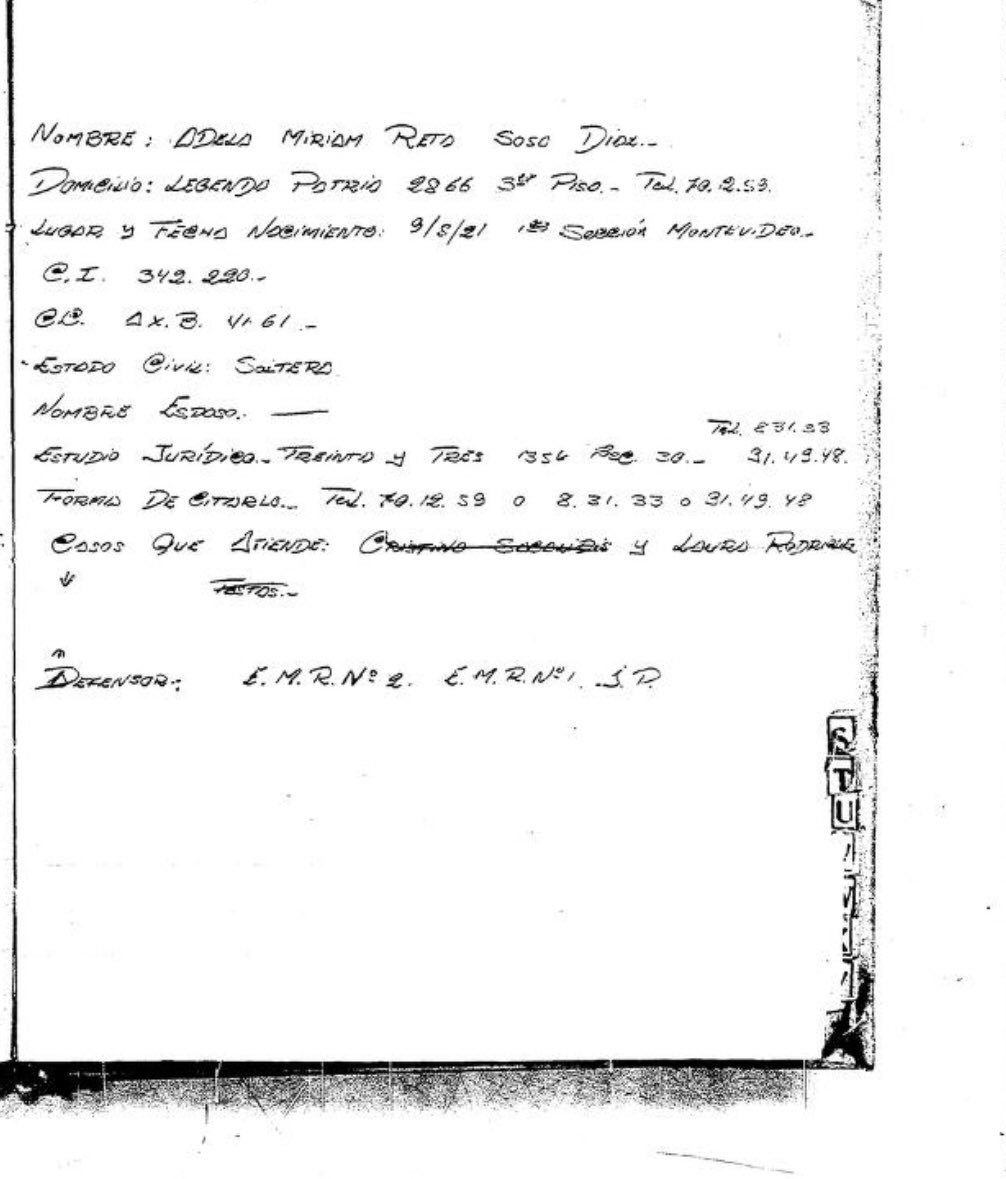 NOMBRE: ADELA MIRIAM RETA SOSA DIAZ.-
DOMICILIO: LEGENDA PATRIA 2866 3er PISO.- Tel. 70.12.59.
LUGAR Y FECHA NACIMIENTO: 9/8/21 1ra SECCIÓN MONTEVIDEO.-
C.I. 342.220.-
C.C. AX.B. 4161.-
ESTADO CIVIL: SOLTERA
NOMBRE ESPOSO. —
Tel. 831.33
ESTUDIO JURÍDICO.- TREINTA Y TRES 1356 30.- 31.49.48.
FORMA DE CITARLA.- Tel. 70.12.59 o 8.31.33 o 31.49.48
CASOS QUE ATIENDE: CRISTINA Y LAURA RODRIGUEZ
DEFENSOR: E.M.R. Nº 2. E.M.R. Nº 1. J.P.
S
T
U